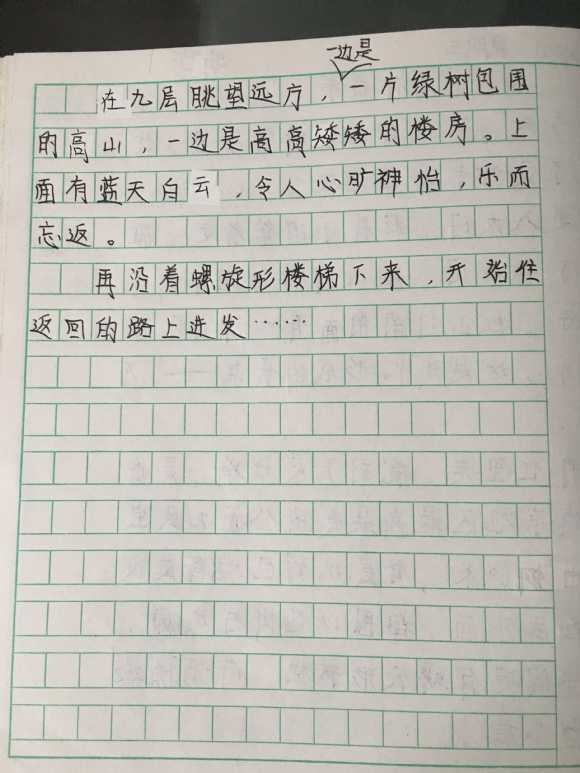 一边是
在九层眺望远方，一片绿树包围
的高山，一边是高高矮矮的楼房。上
面有蓝天白云，令人心旷神怡，乐而
忘返。
再沿着螺旋形楼梯下来，开始住
返回的路上进发……